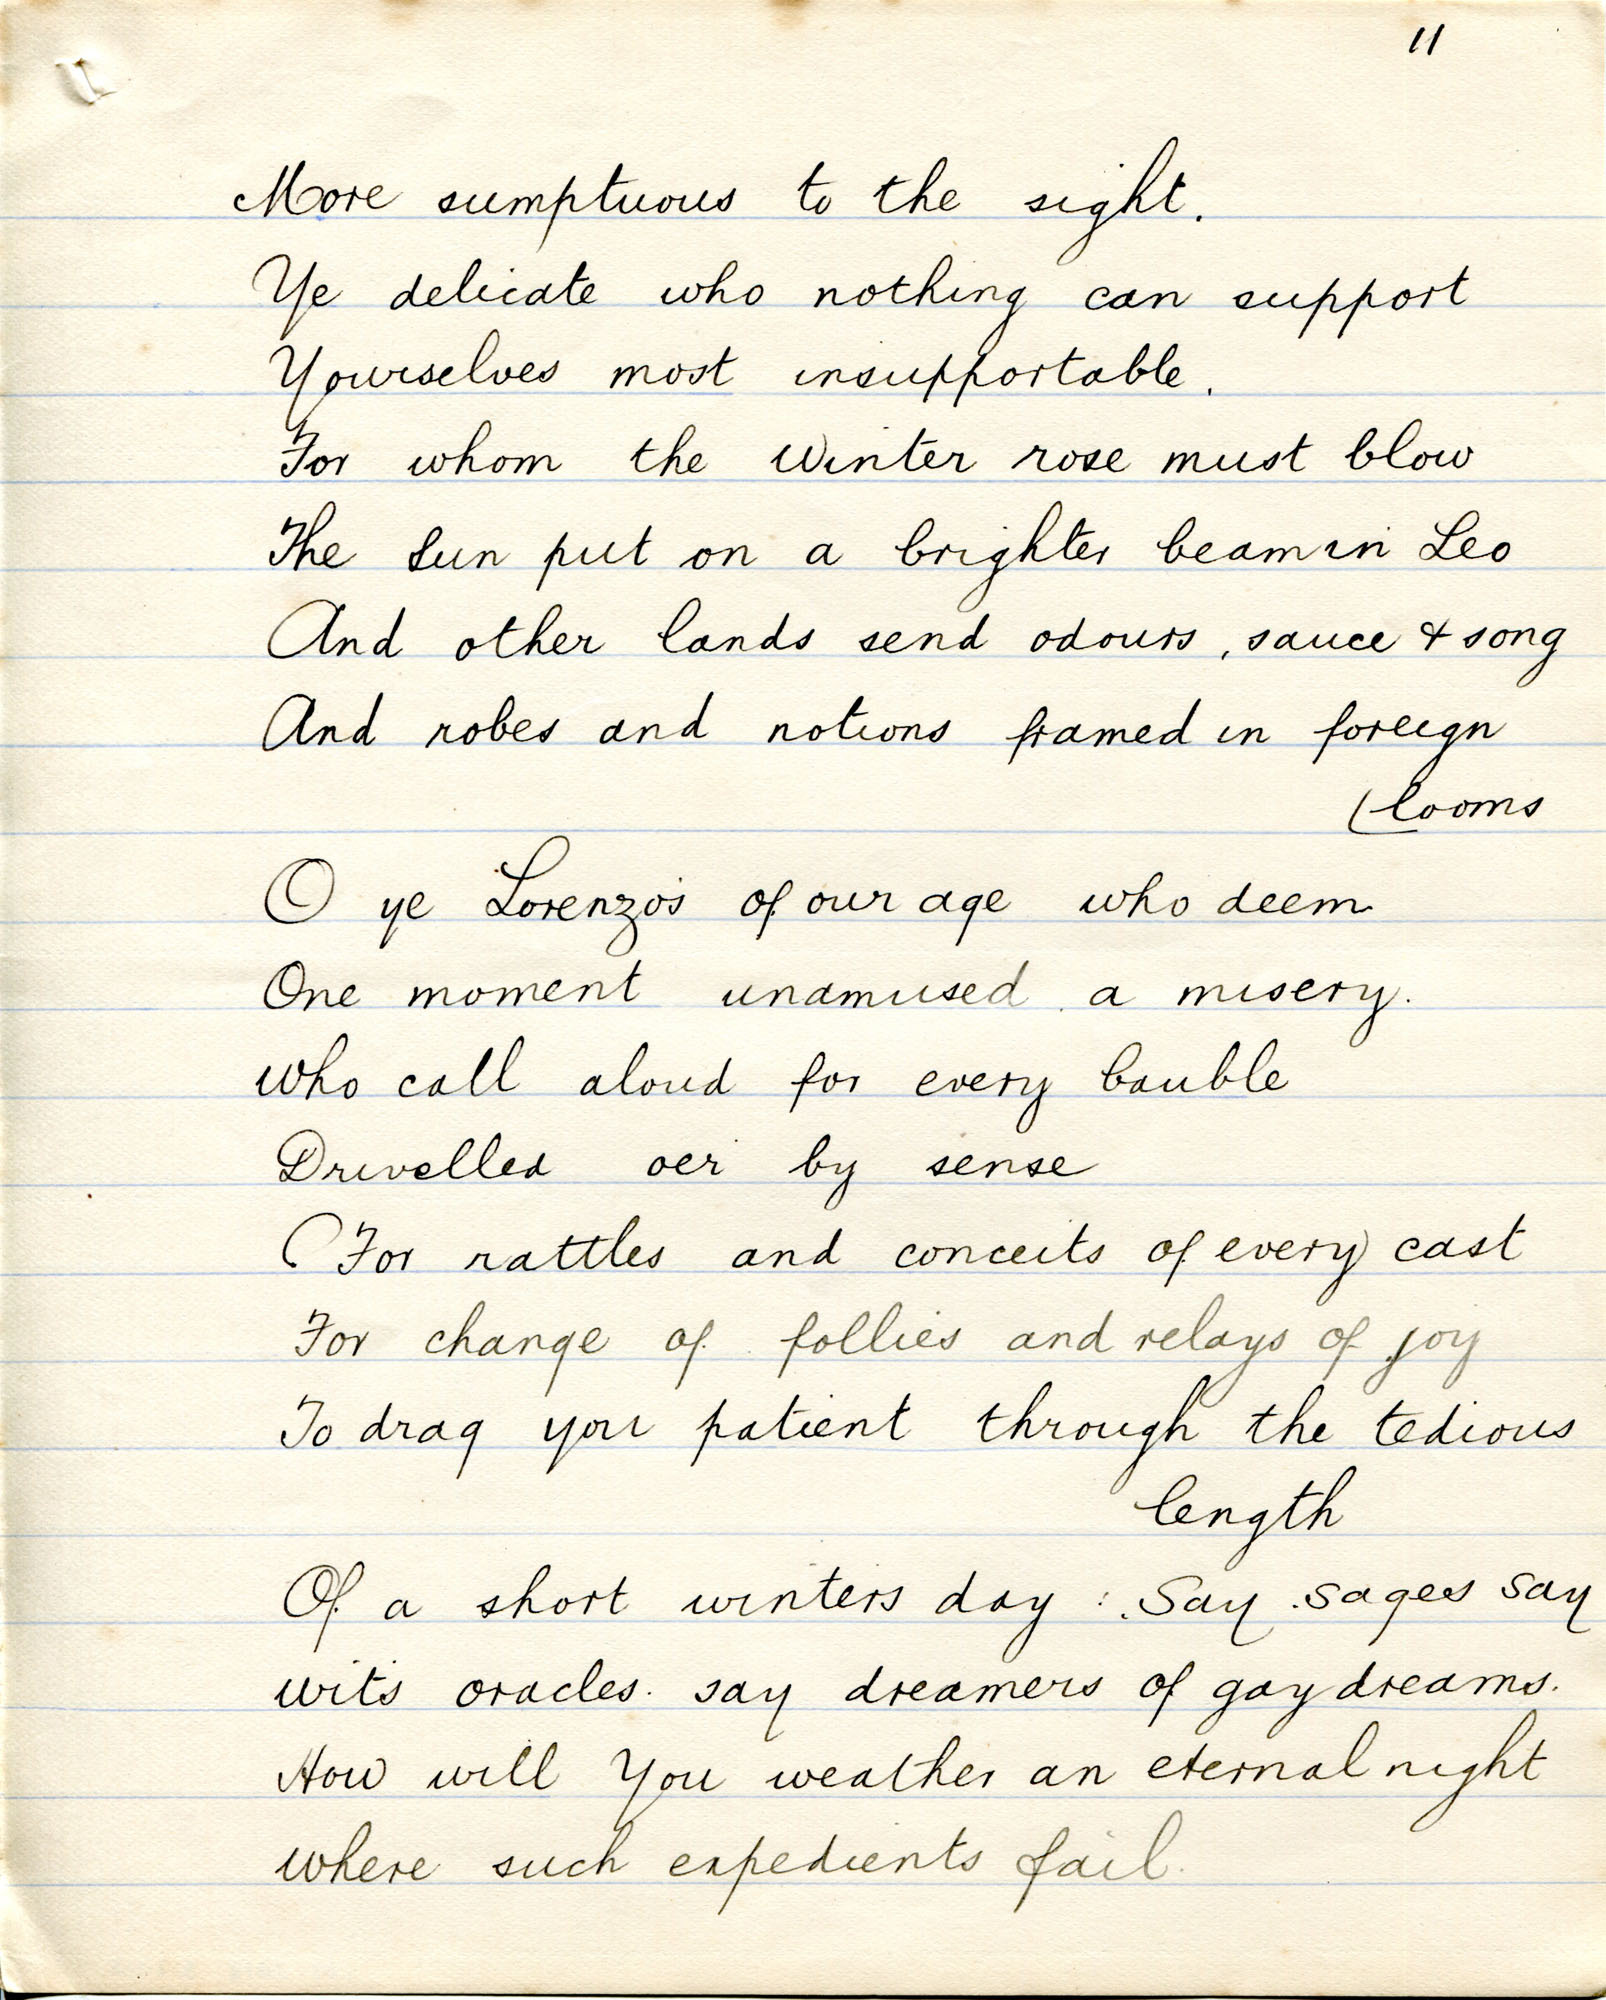 11
More sumptuous to the sight.
Ye delicate who nothing can support
Yourselves most insupportable.
For whom the Winter rose must blow
The Sun put on a brighter beam in Leo
And other lands send odours, sauce & song
And robes and notions framed in foreign
(looms
O ye Lorenzo's of our age who deem
One moment unamused a misery.
Who call aloud for every bauble
Drivelled oer by sense
(For rattles and conceits of every) cast
For change of follies and relays of joy
To drag you patient through the tedious
length
Of a short winters day : Say sages say
wit's oracles. say dreamers of gay dreams.
How will You weather an eternal night
where such expedients fail.